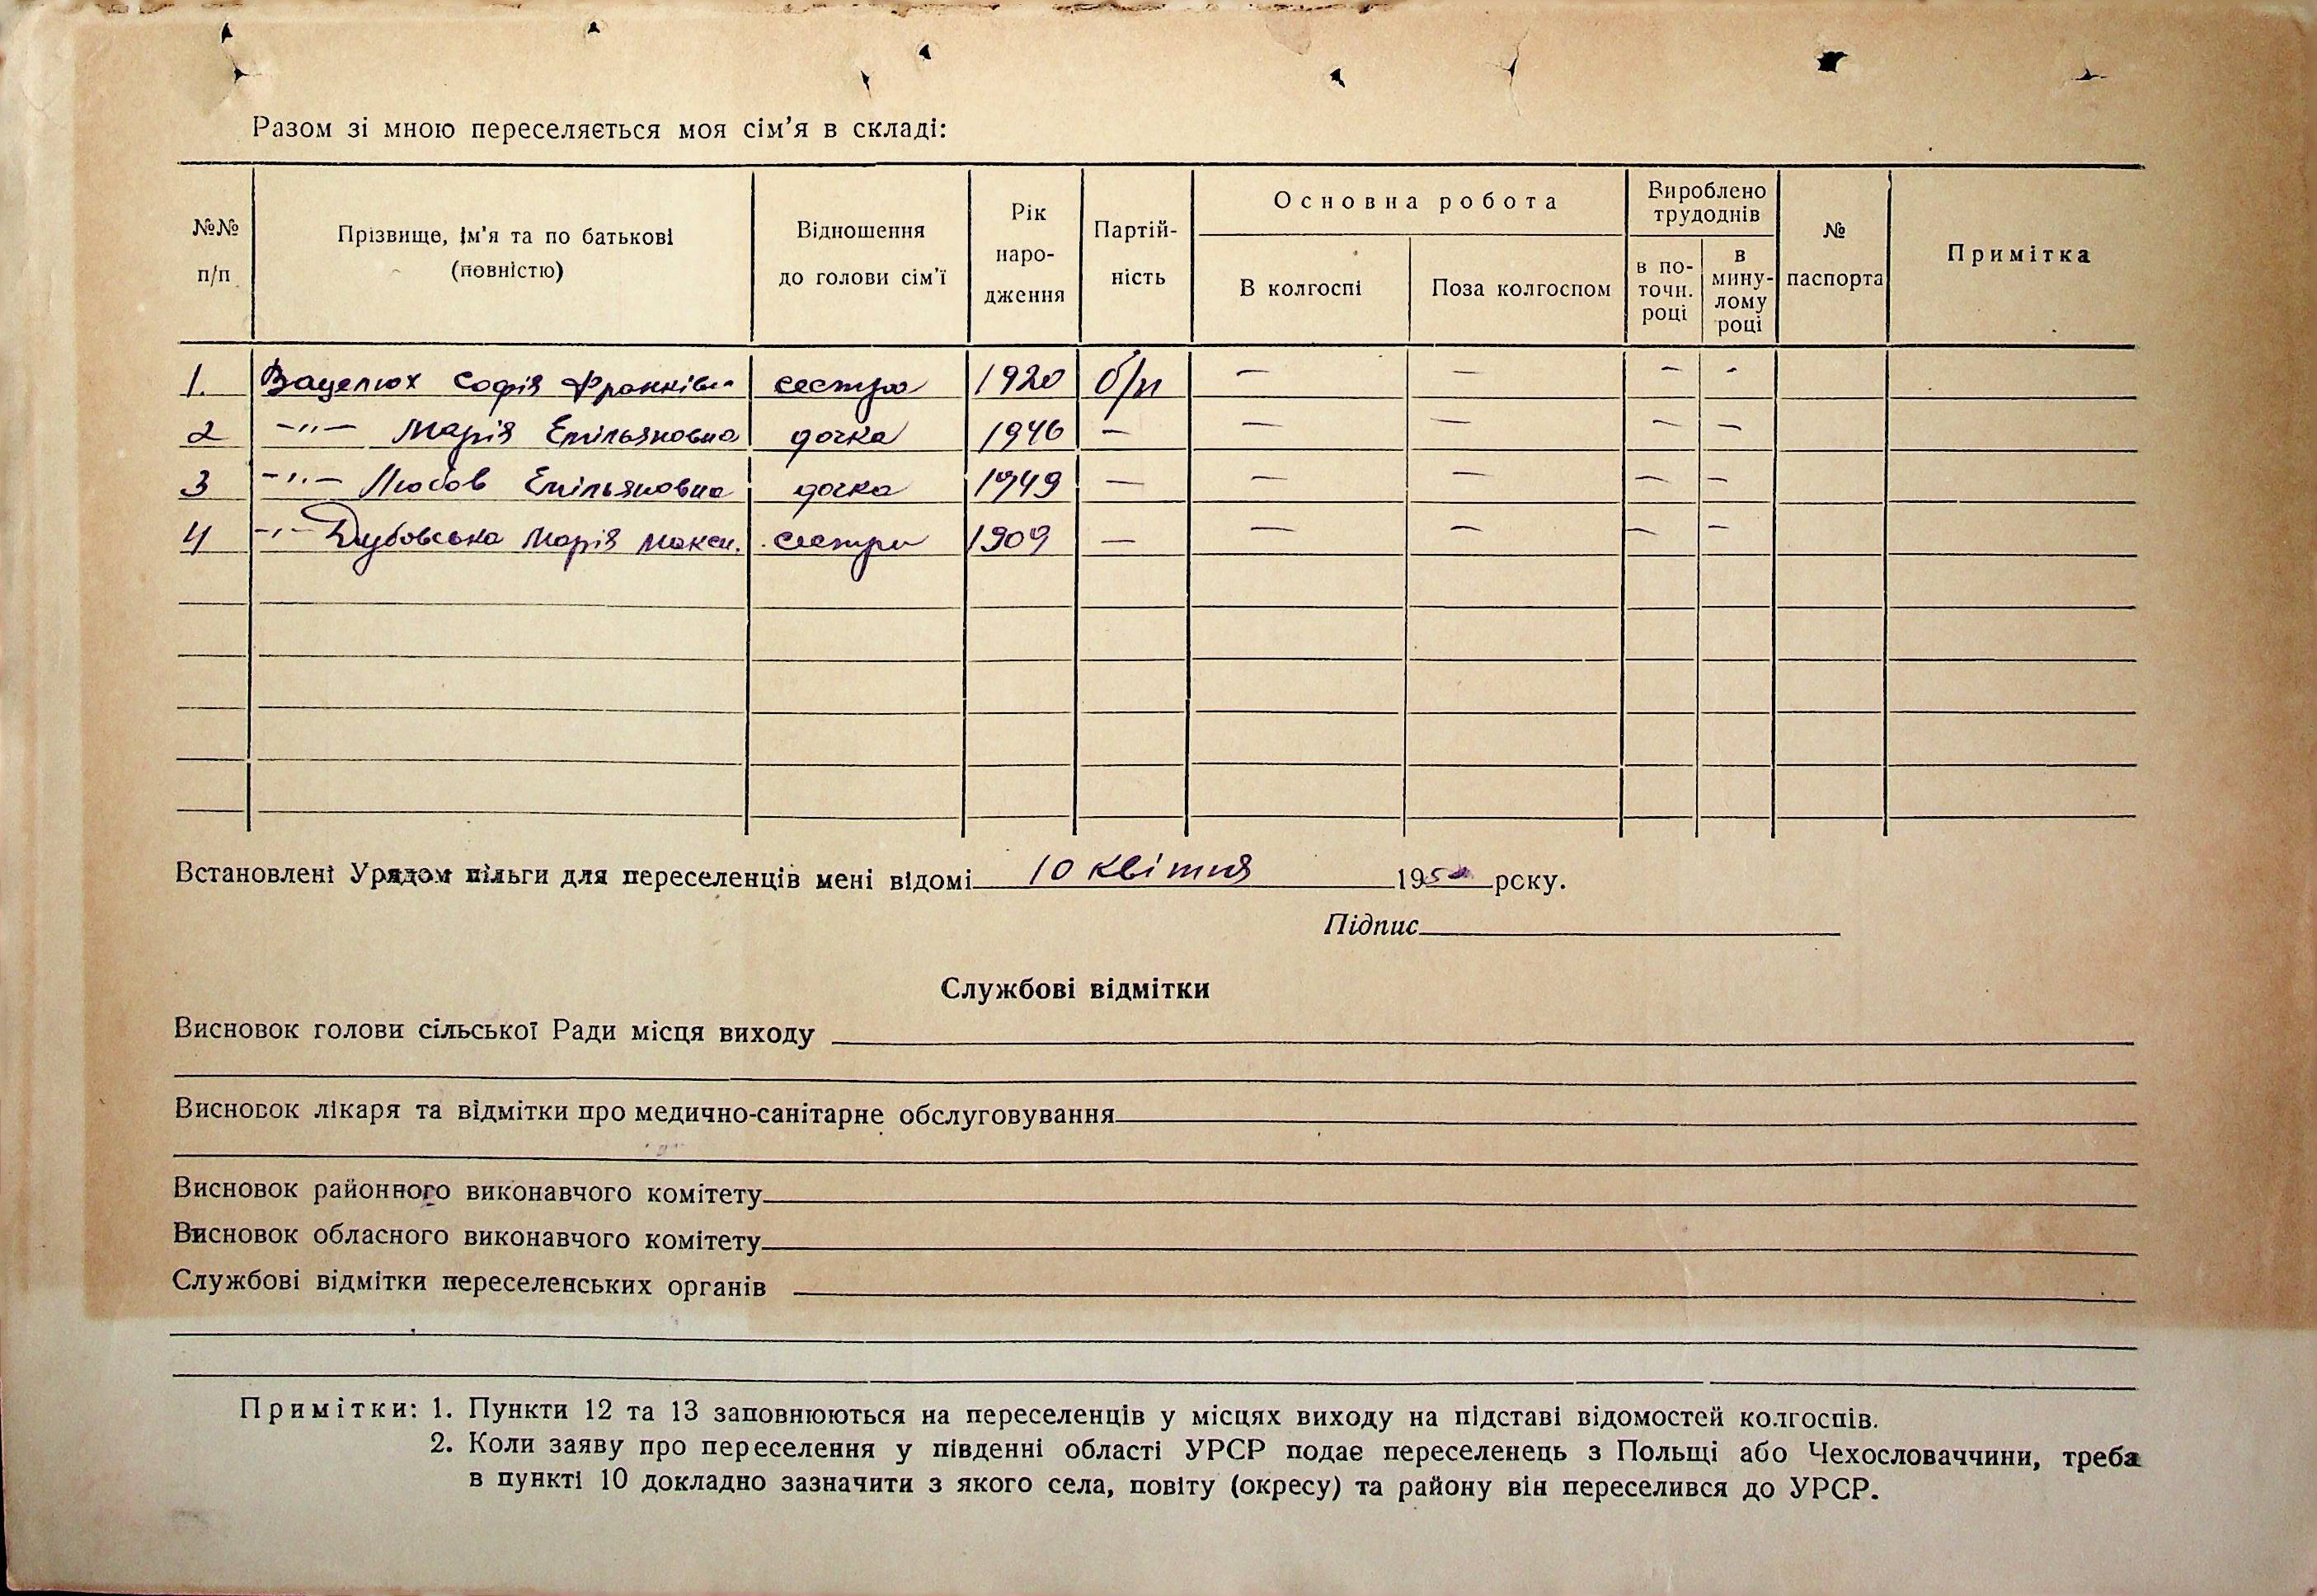 Разом зі мною переселяється моя сім’я в складі:
№№ п/п
Прізвище, ім’я та по батькові (повністю)
Відношення до голови сім’ї
Рік народження
Партійність
Основна робота
В колгоспі
Поза колгоспом
Вироблено трудоднів
в поточн. році
в минулому році
№ паспорта
Примітка
1. Вацелюх Софія Франків сестра 1920 б/п — — — -
2 -"- Марія Емільяновна дочка 1946 — — — — —
3 -"- Любов Емільяновна дочка 1949 — — — — —
4 -"- Дубовська Марія Макси. сестра 1909 — — — — —
Встановлені Урядом пільги для переселенців мені відомі 10 квітня 1950 року.
Підпис
Службові відмітки
Висновок голови сільської Ради місця виходу
Висновок лікаря та відмітки про медично-санітарне обслуговування
Висновок районного виконавчого комітету
Висновок обласного виконавчого комітету
Службові відмітки переселенських органів
Примітки: 1. Пункти 12 та 13 заповнюються на переселенців у місцях виходу на підставі відомостей колгоспів.
2. Коли заяву про переселення у південні області УРСР подає переселенець з Польщі або Чехословаччини, треба
в пункті 10 докладно зазначити з якого села, повіту (окресу) та району він переселився до УРСР.